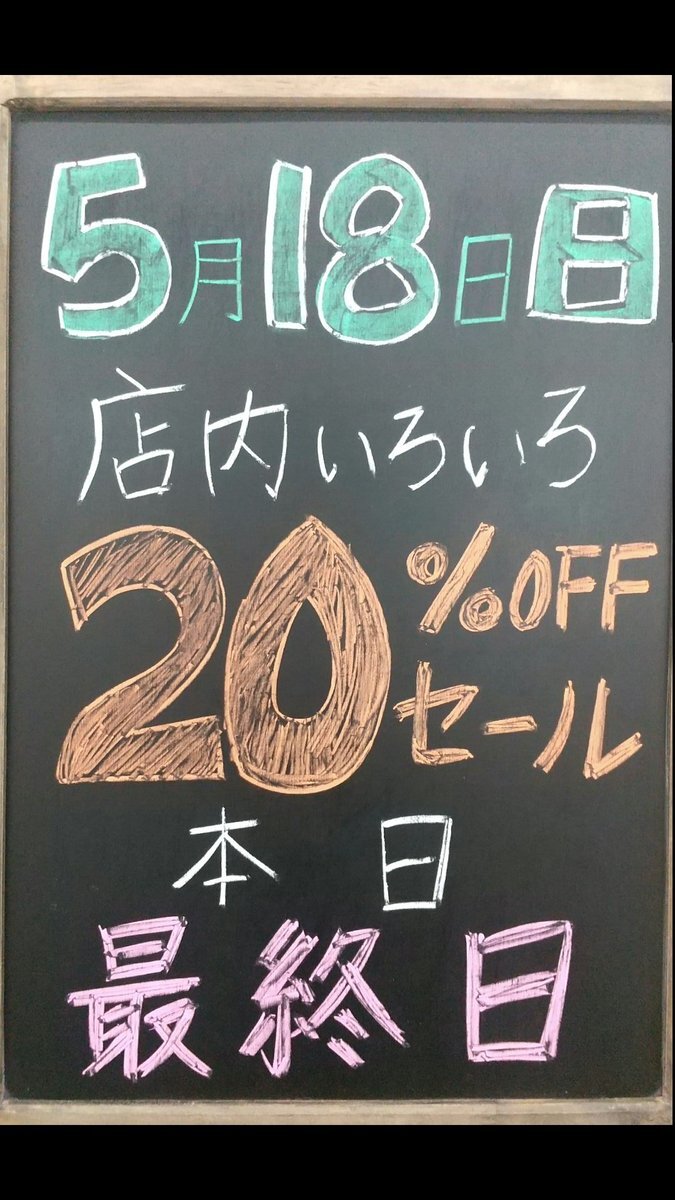 5月18日日
店内いろいろ
20%OFF
セール
本日
最終日